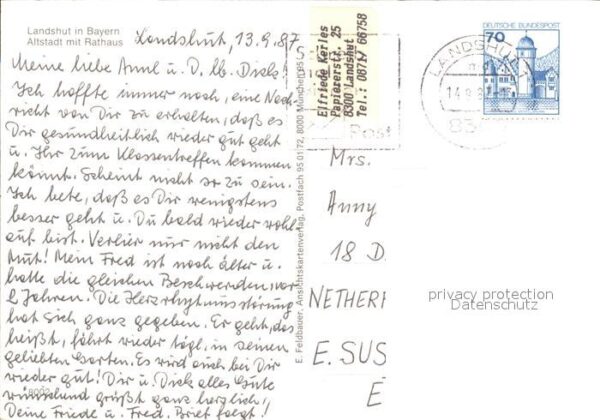 Landshut in Bayern
Altstadt mit Rathaus
Landshut, 13.9.87
Meine liebe Anni u. D. lb. Dick!
Ich hoffte immer noch, eine Nach-
richt von Dir zu erhalten, daß es
Dir gesundheitlich wieder gut geht
u. Ihr zum Klassentreffen kommen
könnt. Scheint nicht so zu sein.
Ich bete, daß es Dir wenigstens
besser geht u. Du bald wieder wohl
auf bist. Verlier nur nicht den
Mut! Mein Fred ist noch älter u.
hatte die gleichen Beschwerden vor
2 Jahren. Die Herzrhytmusstörung
hat sich ganz gegeben. Er geht, das
heißt, fährt wieder tägl. in seinen
geliebten Garten. Es wird auch bei Dir
wieder gut! Dir u. Dick alles Gute
wünschend grüßt ganz herzlich,
Deine Friede u. Fred. Brief folgt!
E. Feldbauer, Ansichtskartenverlag, Postfach 95 01 72, 8000 München 95
Elfriede Kerles
Papiererstr. 25
8300 Landshut
Tel.: 0871/ 66758
Post
LANDSHUT
14.9.
83
70
DEUTSCHE BUNDESPOST
Mrs.
Anny
18 D
NETHERF
E. SUS
E
privacy protection
Datenschutz